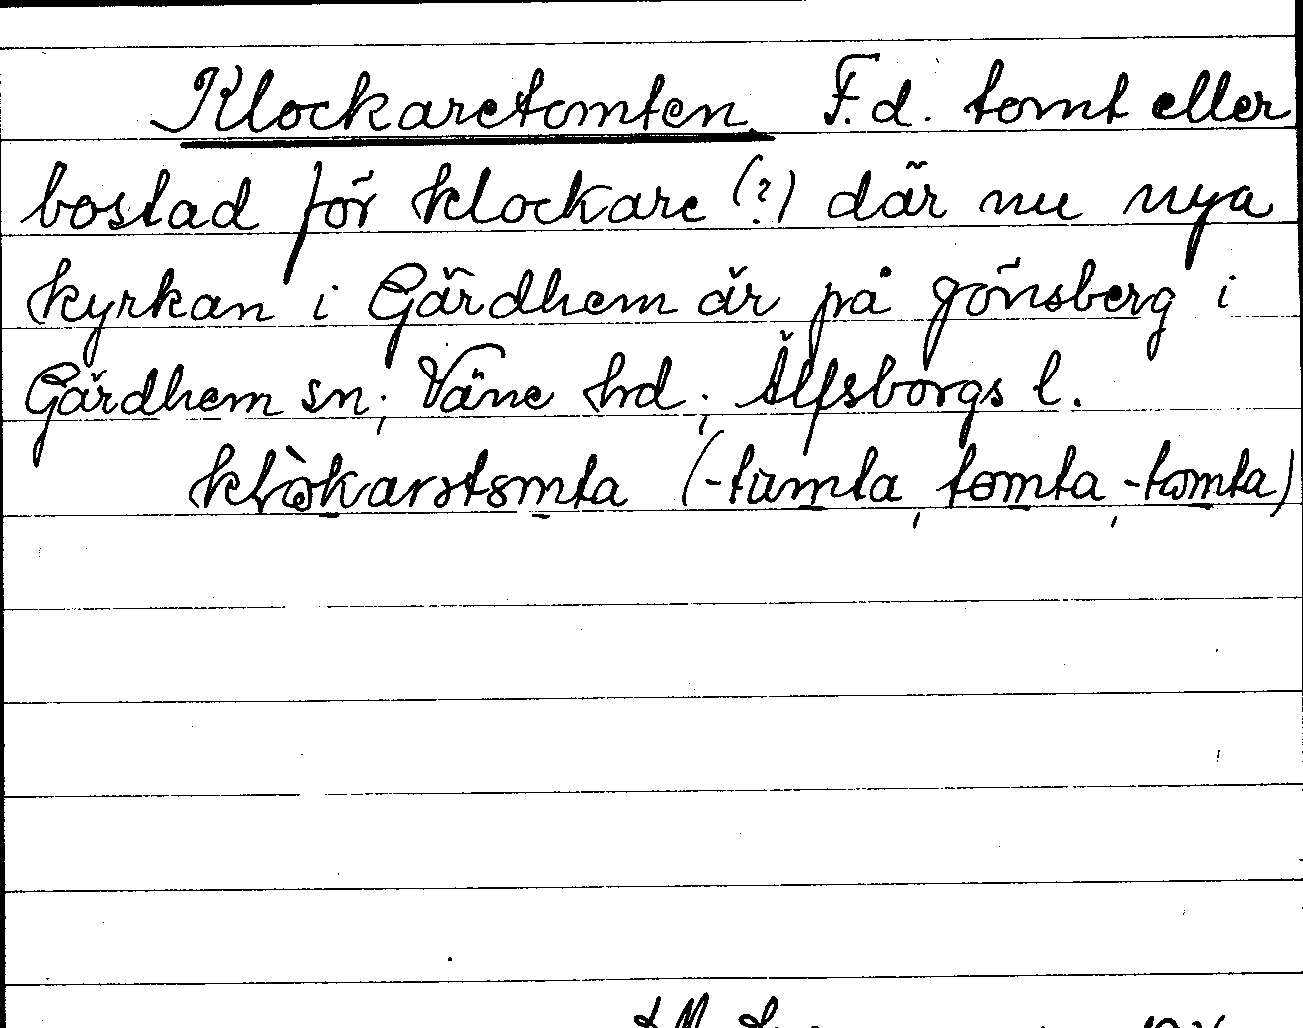 Klockaretomten. F.d. tomt eller
bostad för klockare (?) där nu nya
kyrkan i Gärdhem är på Gönsberg i
Gärdhem sn; Väne hd; Älfsborgs l.
klòkarətomta (-tumta, tomta, -tomta)